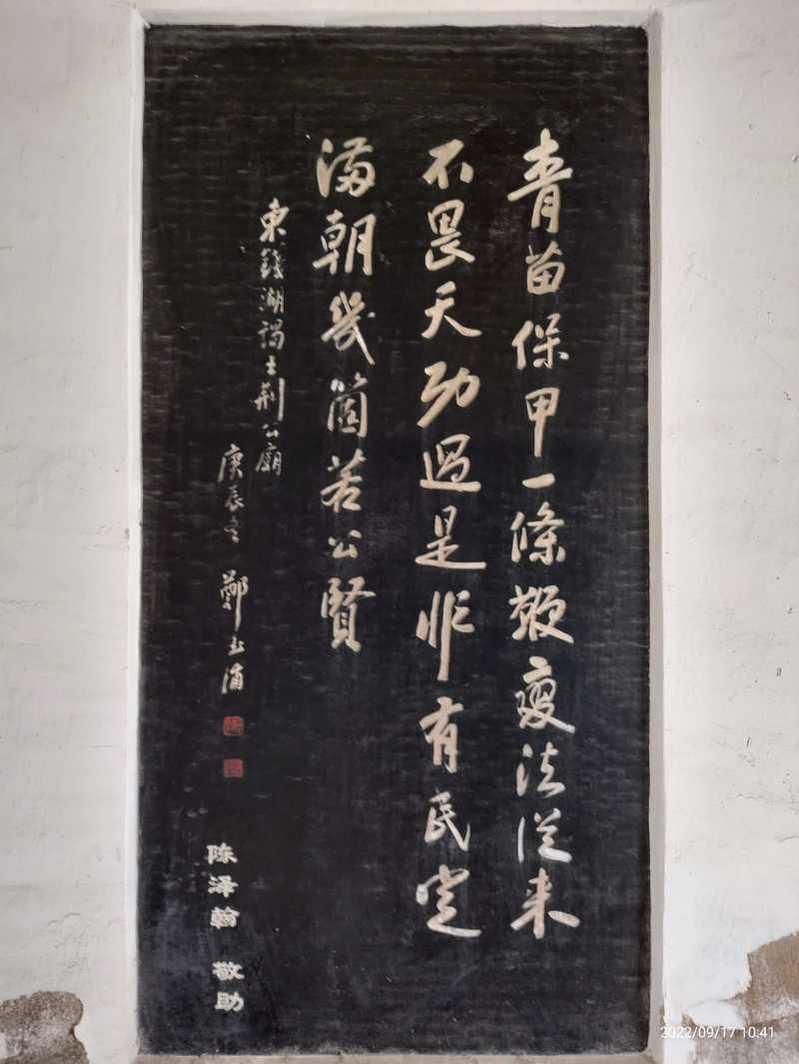 青苗保甲一條鞭變法從来
不畏天功過是非有民定
滿朝幾箇若公賢
東錢湖謁王荆公廟
庚辰冬 鄭玉浦
陈泽翰 敬助
2022/09/17 10:41